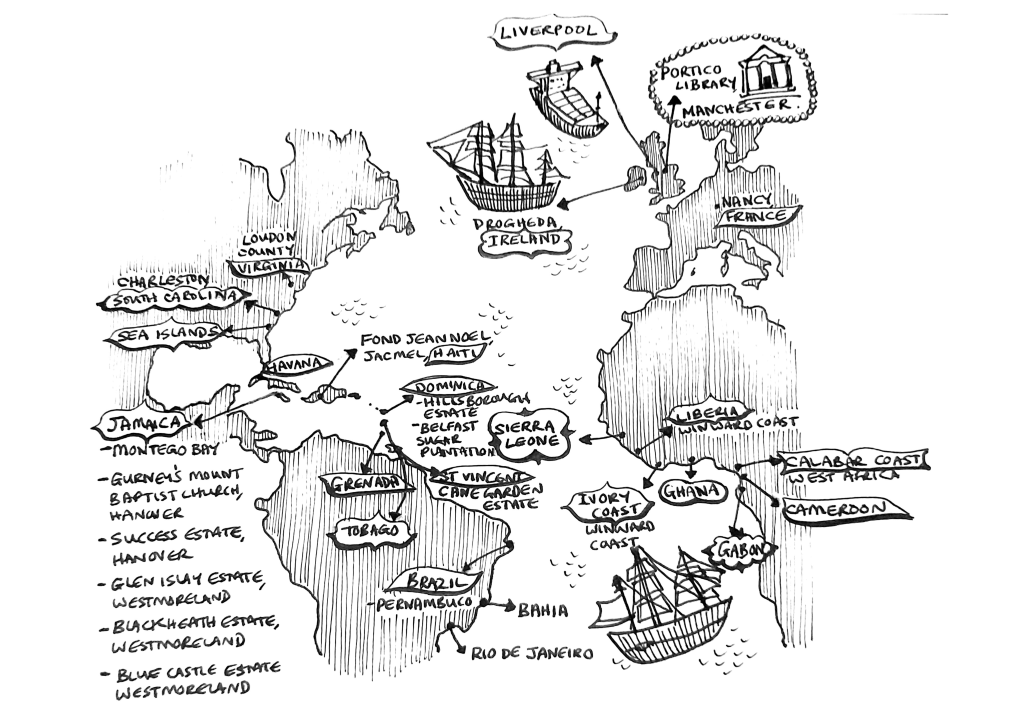 LIVERPOOL
PORTICO
LIBRARY
MANCHESTER.
DROGHEDA,
IRELAND
NANCY
FRANCE
LOUDON
COUNTY
VIRGINIA
CHARLESTON
SOUTH CAROLINA
SEA ISLANDS
HAVANA
FOND JEAN NOEL
JACMEL, HAITI
DOMINICA
-HILLSBOROUGH
ESTATE
-BELFAST
SUGAR
PLANTATION
JAMAICA
-MONTEGO BAY
-GURNEY'S MOUNT
BAPTIST CHURCH,
HANOVER
-SUCCESS ESTATE,
HANOVER
-GLEN ISLAY ESTATE,
WESTMORELAND
-BLACKHEATH ESTATE,
WESTMORELAND
-BLUE CASTLE ESTATE
WESTMORELAND
GRENADA
ST VINCENT
CANE GARDEN
ESTATE
TOBAGO
BRAZIL
-PERNAMBUCO
BAHIA
RIO DE JANEIRO
SIERRA
LEONE
LIBERIA
WINWARD COAST
IVORY
COAST
WINWARD
COAST
GHANA
CALABAR COAST
WEST AFRICA
CAMEROON
GABON